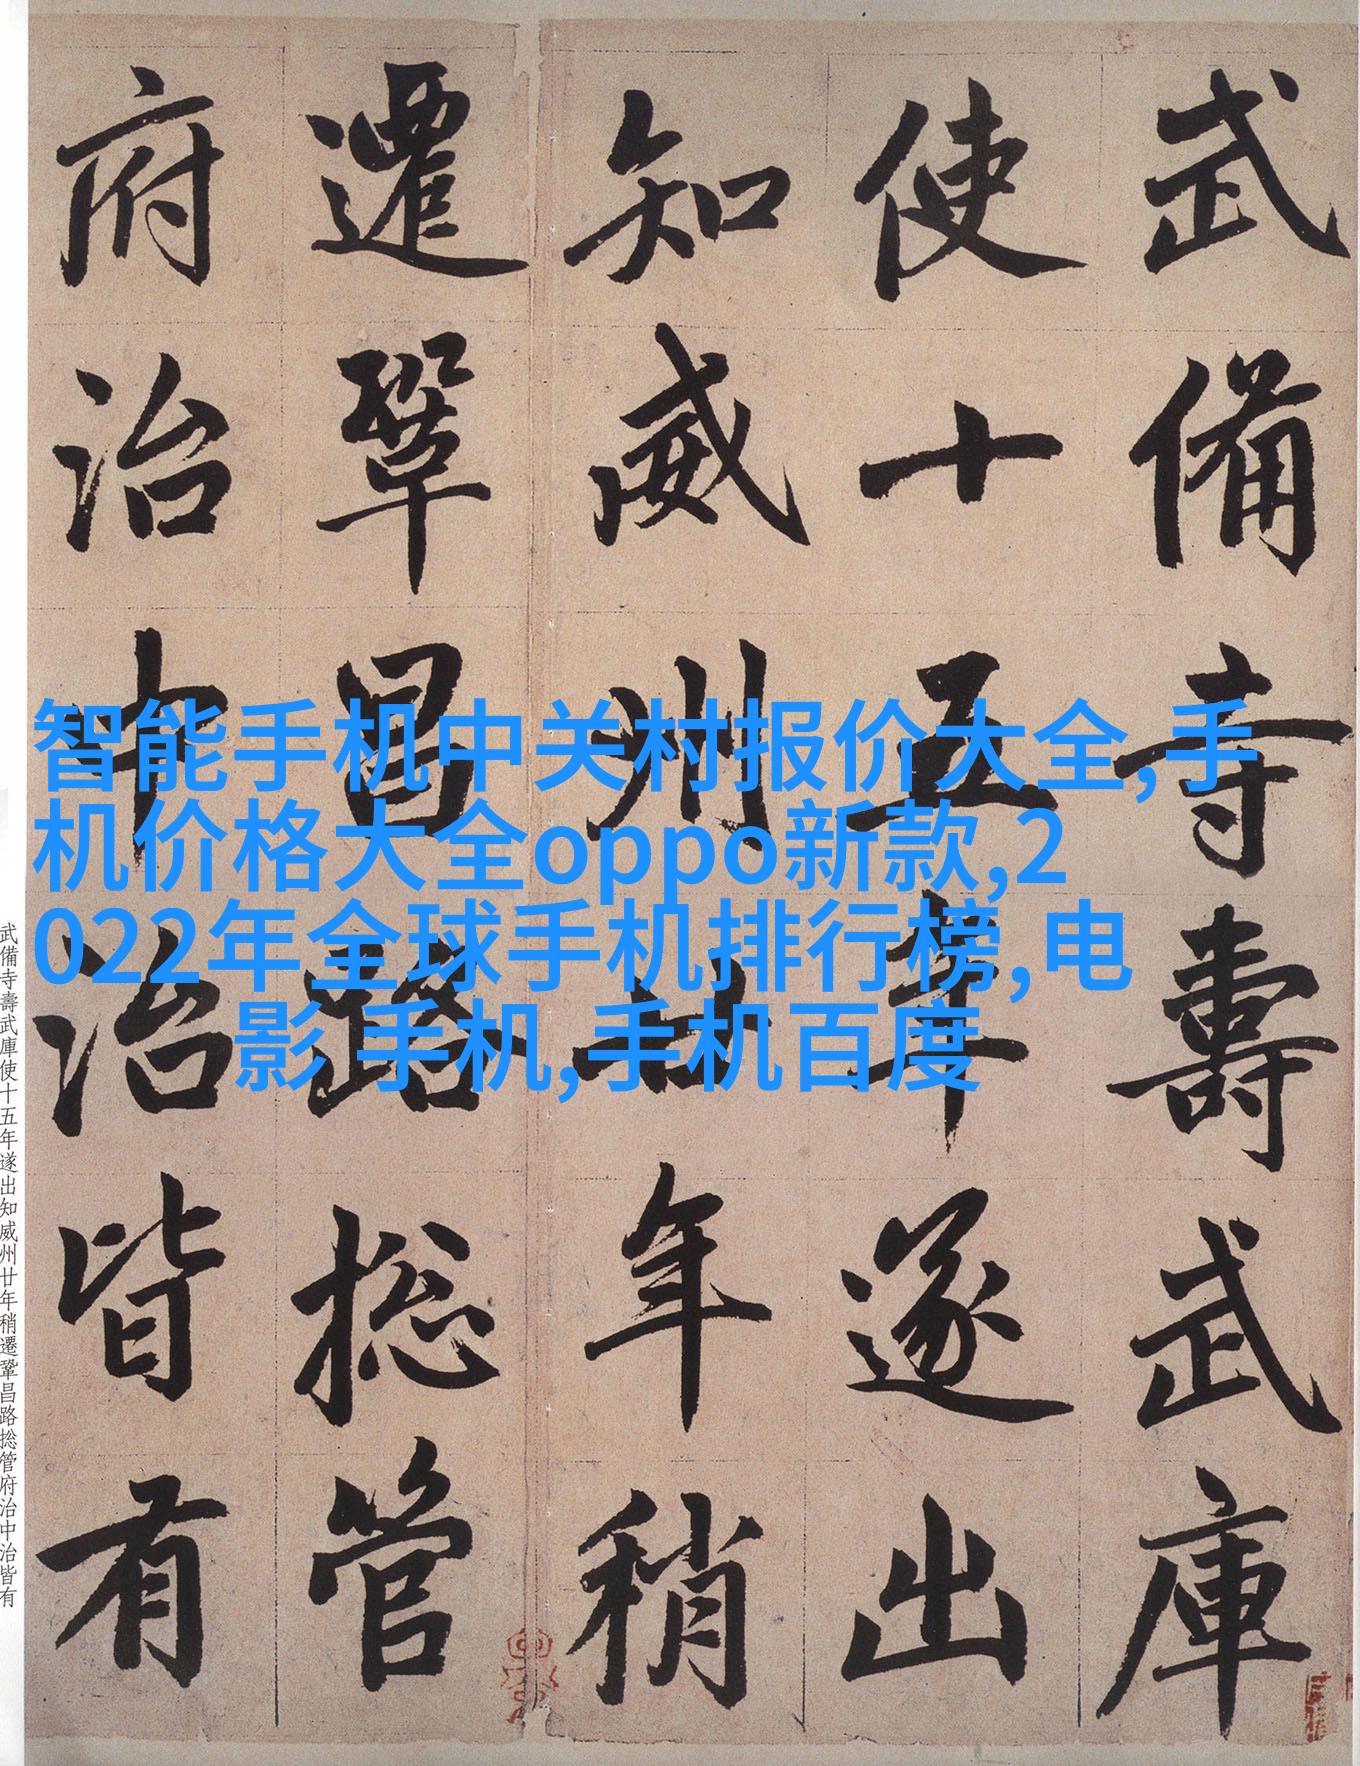 武備寺壽武庫
使十五年遂出
知威州廿年稍
遷鞏昌路捴管
府治中治皆有
智能手机中关村报价大全,手
机价格大全oppo新款,2
022年全球手机排行榜,电
影 手机,手机百度
武備寺壽武庫使十五年遂出知威州廿年稍遷鞏昌路捴管府治中治皆有